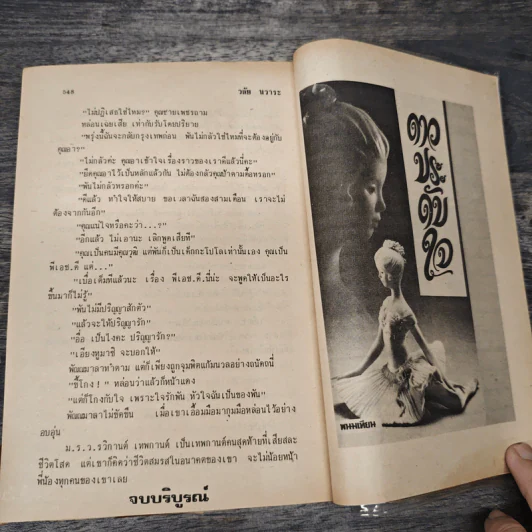 ๖๔๘ วลัย นวาระ
"ไม่ปฏิเสธใช่ไหม?" คุณชายเพชรถาม
หล่อนเฉยเสีย เท่ากับรับโดยปริยาย
"พรุ่งนี้ฉันจะกลับกรุงเทพก่อน พันไม่กลัวใช่ไหมที่จะต้องอยู่กับ
คุณอา?"
"ไม่กลัวค่ะ คุณอาเข้าใจเรื่องราวของเราดีแล้วนี่คะ"
"ยึดคุณอาไว้เป็นหลักแล้วกัน ไม่ต้องกลัวคุณป้าคามคี้หรอก"
"พันไม่กลัวหรอกค่ะ"
"ดีแล้ว ทำใจให้สบาย ขอเวลาฉันสองสามเดือน เราจะไม่
ต้องจากกันอีก"
"คุณแน่ใจหรือคะว่า...?"
"อีกแล้ว ไม่เอานะ เลิกพูดเสียที"
"คุณเป็นคนมีคุณวุฒิ แต่พันก็เป็นเด็กกะโปโลเท่านั้นเอง คุณเป็น
พีเอช.ดี แต่..."
"เบื่อเต็มทีแล้วนะ เรื่อง พีเอช.ดี.นี่น่ะ จะพูดให้เป็นอะไร
ขึ้นมาก็ไม่รู้"
"พันไม่มีปริญญาสักตัว"
"แล้วจะให้ปริญญารัก"
"อื้อ เป็นไงคะ ปริญญารัก?"
"เอียงหูมาซิ จะบอกให้"
พัณณมาลาทำตาม แต่ก็เพียงถูกจุมพิตแก้มนวลอย่างถนัดถนี่
"ขี้โกง!" หล่อนว่าแล้วก็หน้าแดง
"แต่ก็โกงกับใจ เพราะใจรักพัน หัวใจฉันเป็นของพัน"
พัณณมาลาไม่ขัดขืน เมื่อเขาเอื้อมมือมากุมมือหล่อนไว้อย่าง
อบอุ่น
ม.ร.ว.รวิกานต์ เทพกานต์ เป็นเทพกานต์คนสุดท้ายที่เสียสละ
ชีวิตโสด แต่เขาก็คิดว่าชีวิตสมรสในอนาคตของเขา จะไม่น้อยหน้า
พี่น้องทุกคนของเขาเลย
จบบริบูรณ์
ดาว
ประ
ดับ
ใจ
พนมเทียน